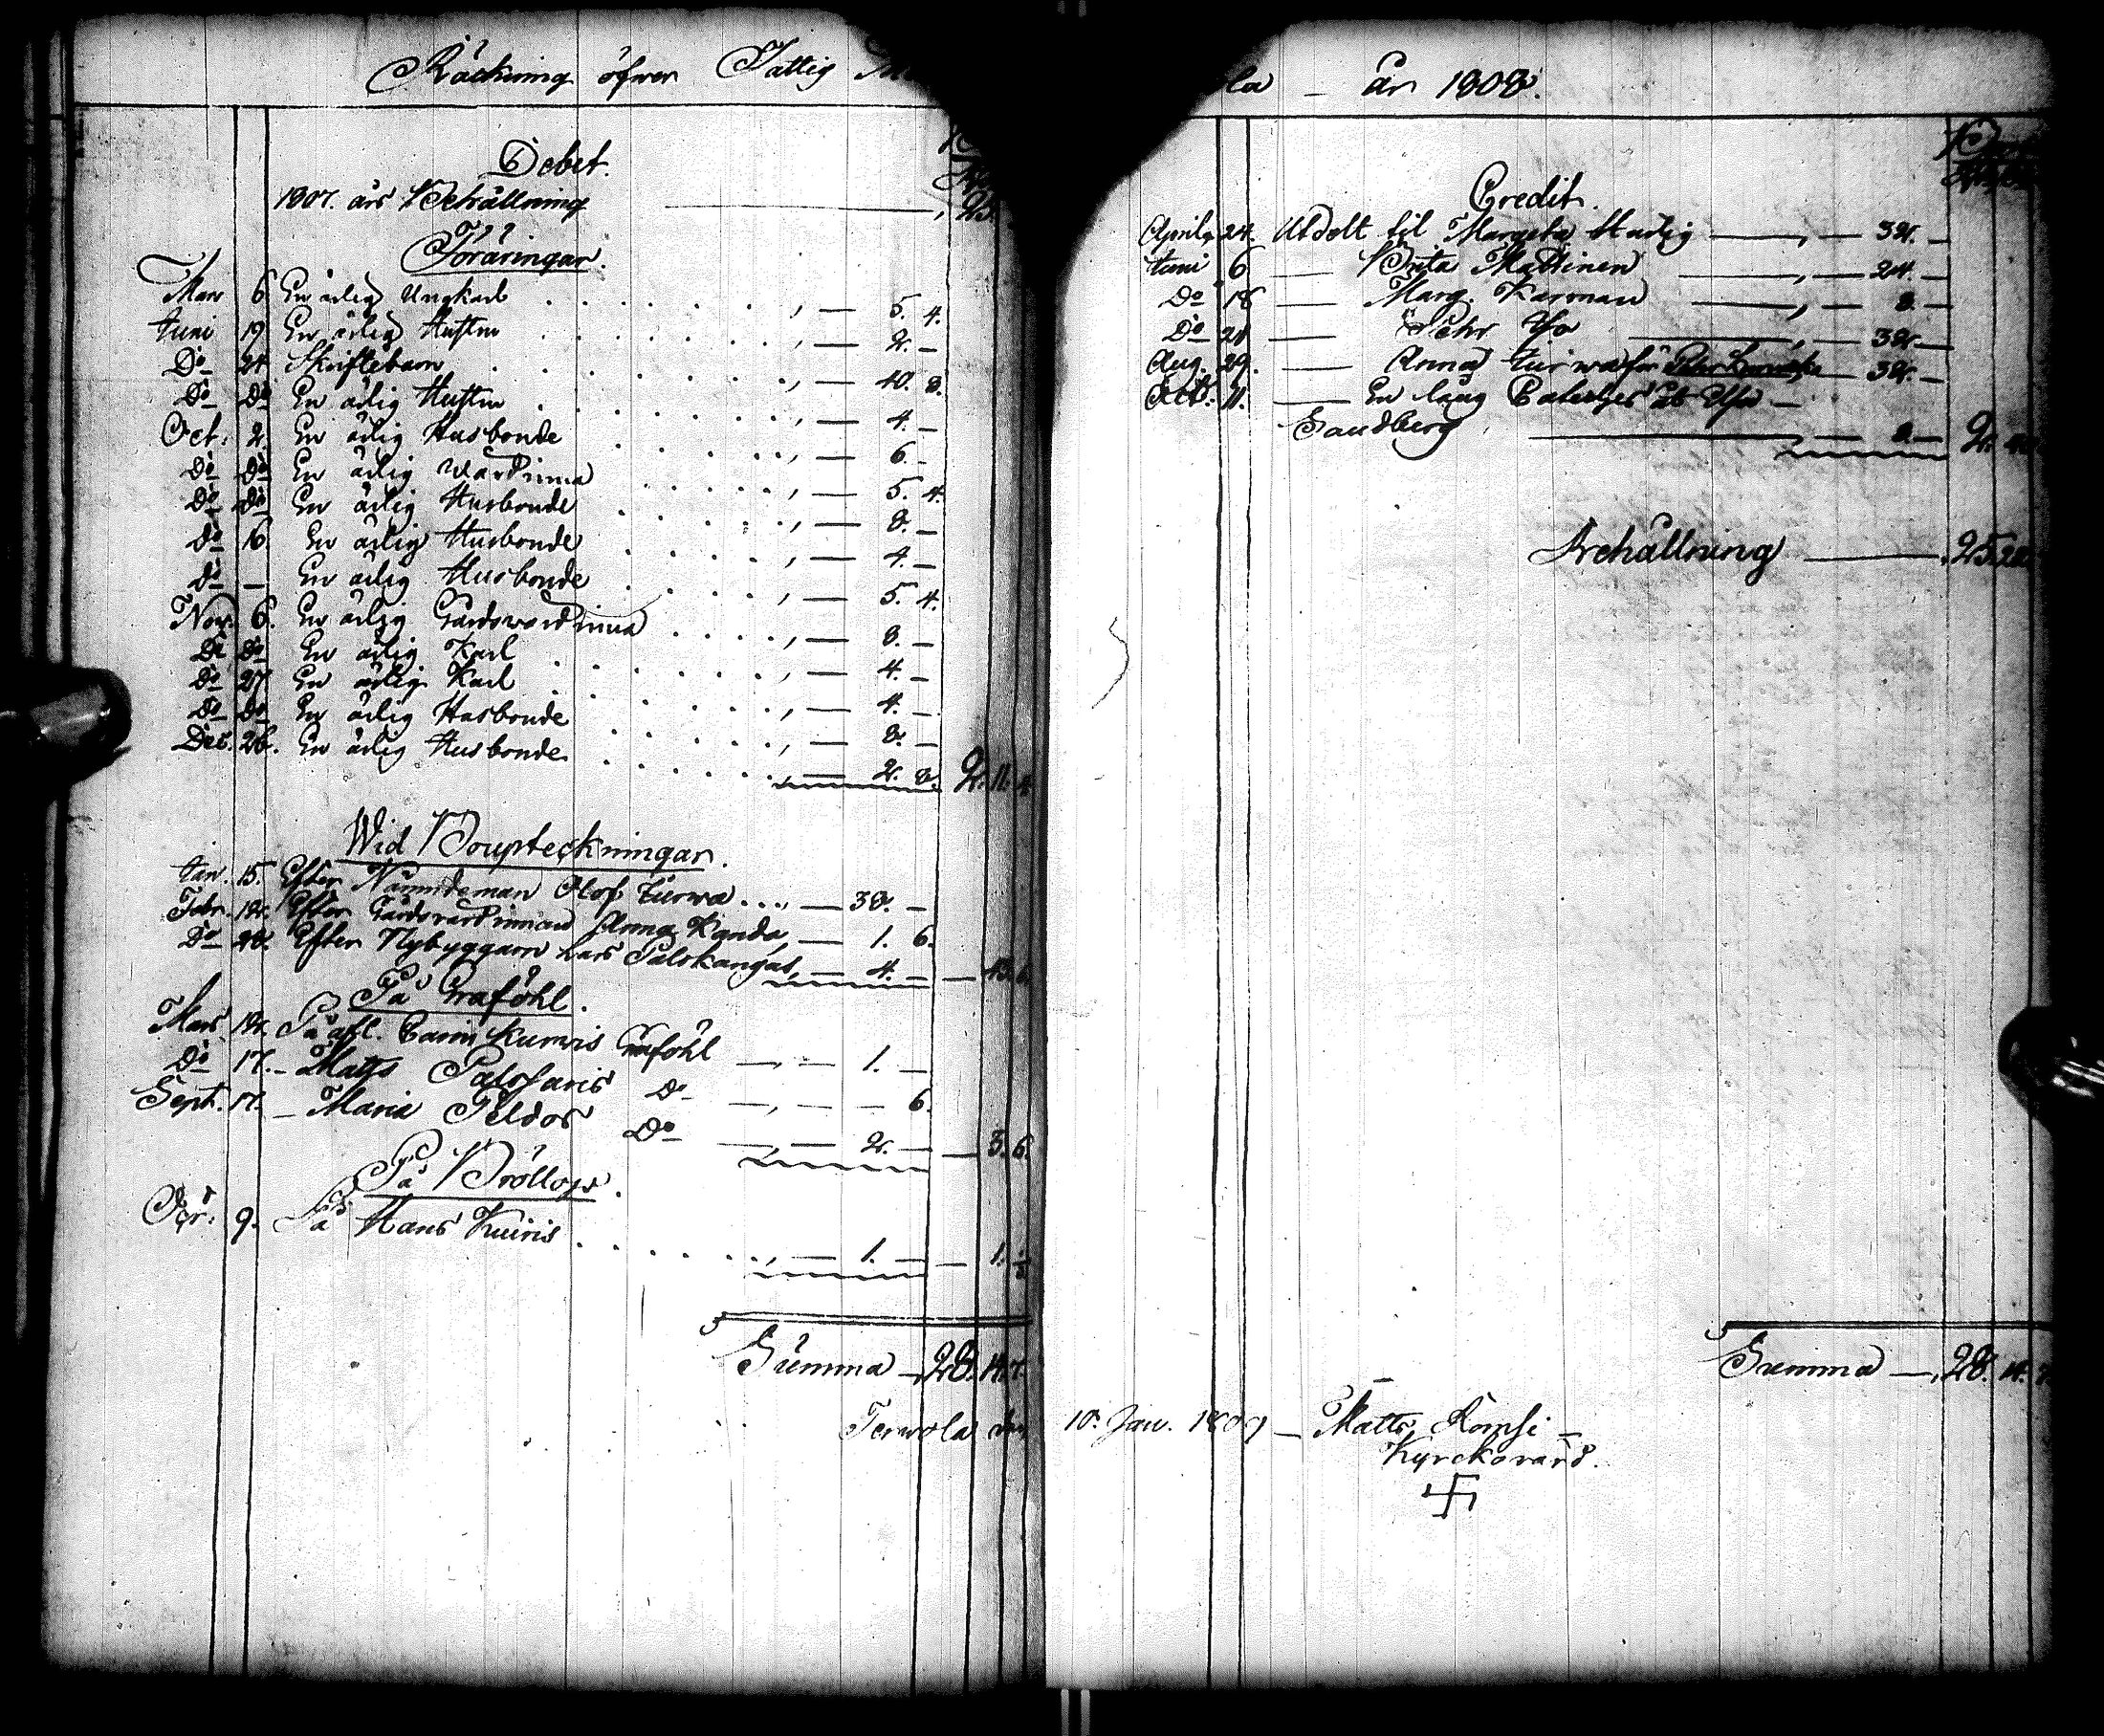 Räckning öfwer Fattig
la — år 1808.
Debet.
1807. års Behållning — 25.
Föräringar.
Mars 6. En ärlig Ungkarl — 5. 4.
Juni 19. En ärlig Hustru — 2. —
Do 24. Skriftebarn — 40. 8.
Do Do En ärlig Hustru — 4. —
Oct. 2. En ärlig Husbonde — 6. —
Do Do En ärlig Wärdinna — 5. 4.
Do Do En ärlig Husbonde — 8. —
Do 16. En ärlig Husbonde — 4. —
Do — En ärlig Husbonde — 5. 4.
Nov. 6. En ärlig Gårdswärdinna — 8. —
Do Do En ärlig Karl — 4. —
Do 27. En ärlig Karl — 4. —
Do Do En ärlig Husbonde — 8. —
Dec. 26. En ärlig Husbonde — 2. 8. 2. 11. 4.
Wid Boupteckningar.
Jan. 15. Efter Nämndeman Olof — 38. —
Febr. 12. Efter Gårdsvärdinnan Anna — 1. 6.
Do 28. Efter Nybyggarn Lars Palokangas — 4. — — 43. 6.
På Graföhl.
Mars 12. På afl. Carin Graföhl — 1. —
Do 17. — Matts Do — — 6.
Sept. 17. — Maria Do — 2. — — 3. 6.
På Bröllop.
9. På Hans — 1. — — 1.
Summa — 28. 14. 7.
Terwola den
Credit.
April 24. Utdelt til Margeta — 32. —
Juni 6 — Brita Mattinen — 24. —
Do 18 — Marg. Karman — 8. —
Do 24 — Pehr — 32. —
Aug. 29. — Anna för — 32. —
Octb. 11. — En låug åt
Sandberg — 8. — 2.
Behållning — 25.
Summa — 28. 14.
10. Jan. 1809 — Matts Romsi —
Kyrckovärd.